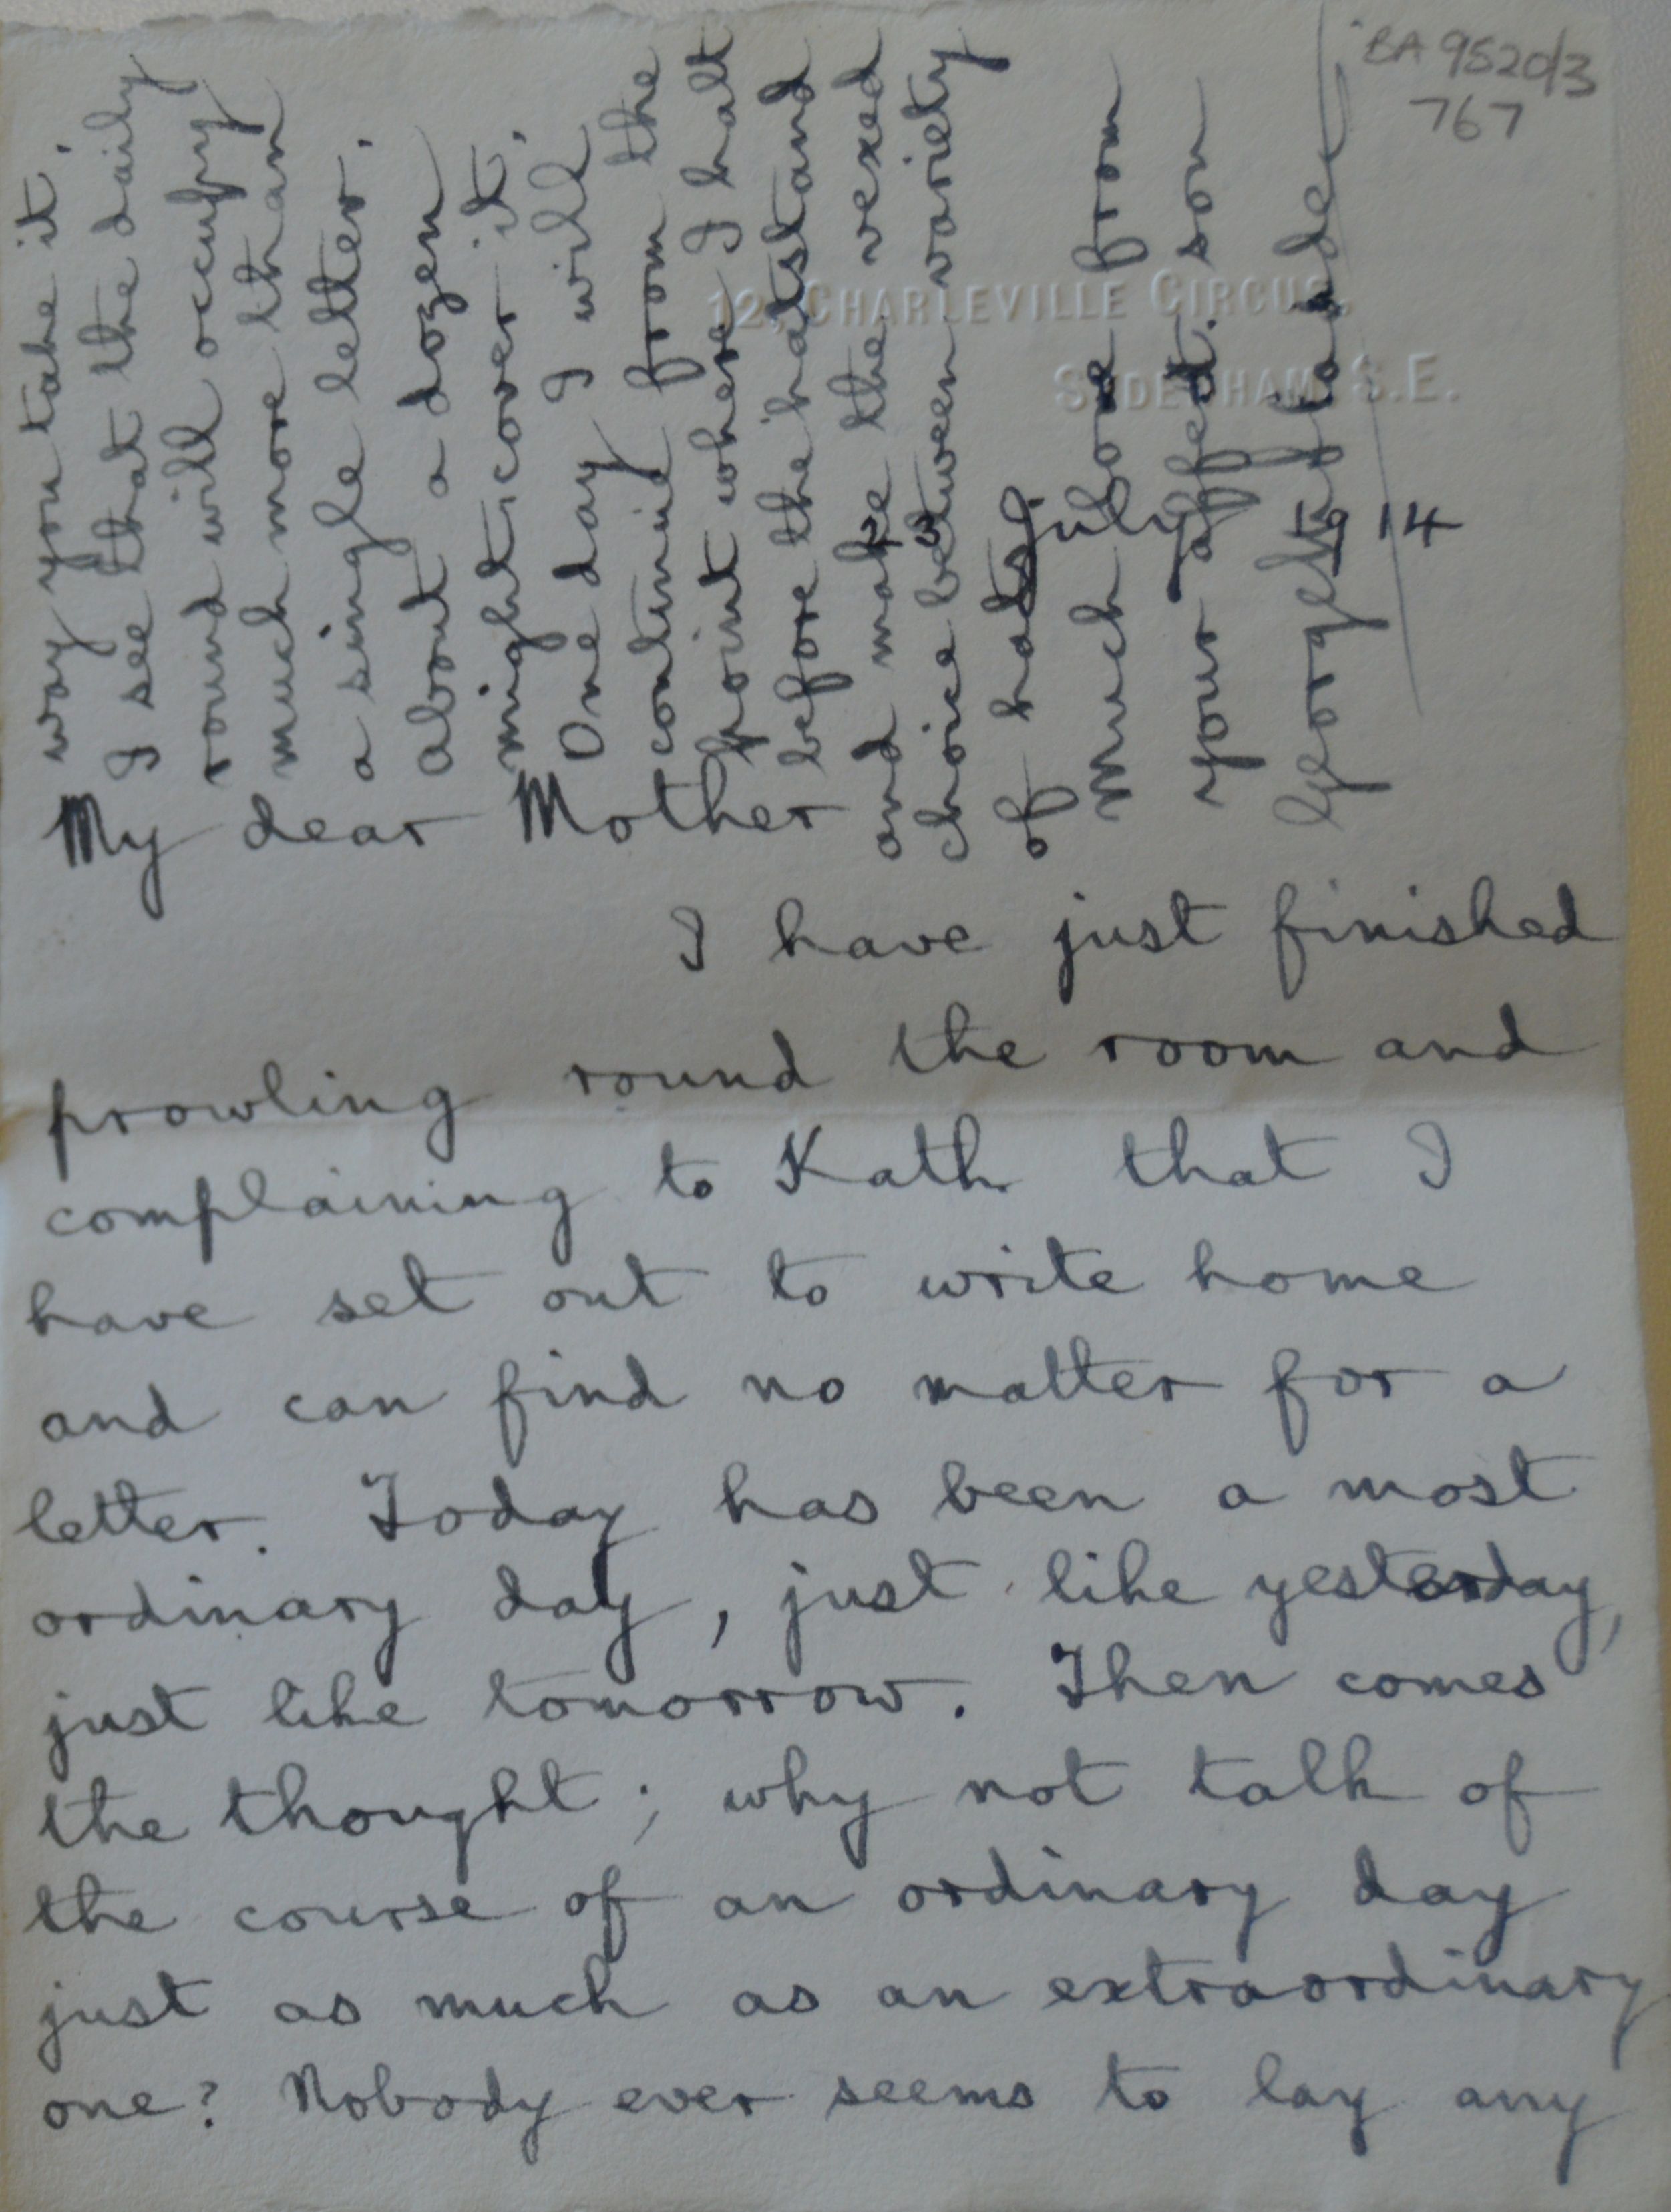 BA 9520/3
767
12, CHARLEVILLE CIRCUS,
SYDENHAM, S.E.
July 23 1914
My dear Mother
I have just finished
prowling round the room and
complaining to Kath that I
have set out to write home
and can find no matter for a
letter. Today has been a most
ordinary day, just like yesterday,
just like tomorrow. Then comes
the thought; why not talk of
the course of an ordinary day
just as much as an extraordinary
one? Nobody ever seems to lay any
way you take it.
I see that the daily
round will occupy
much more than
a single letter.
About a dozen
might cover it.
One day I will
continue from the
point where I halt
before the hatstand
and make the vexed
choice between variety
of hats.
Much love from
your affect. son
George